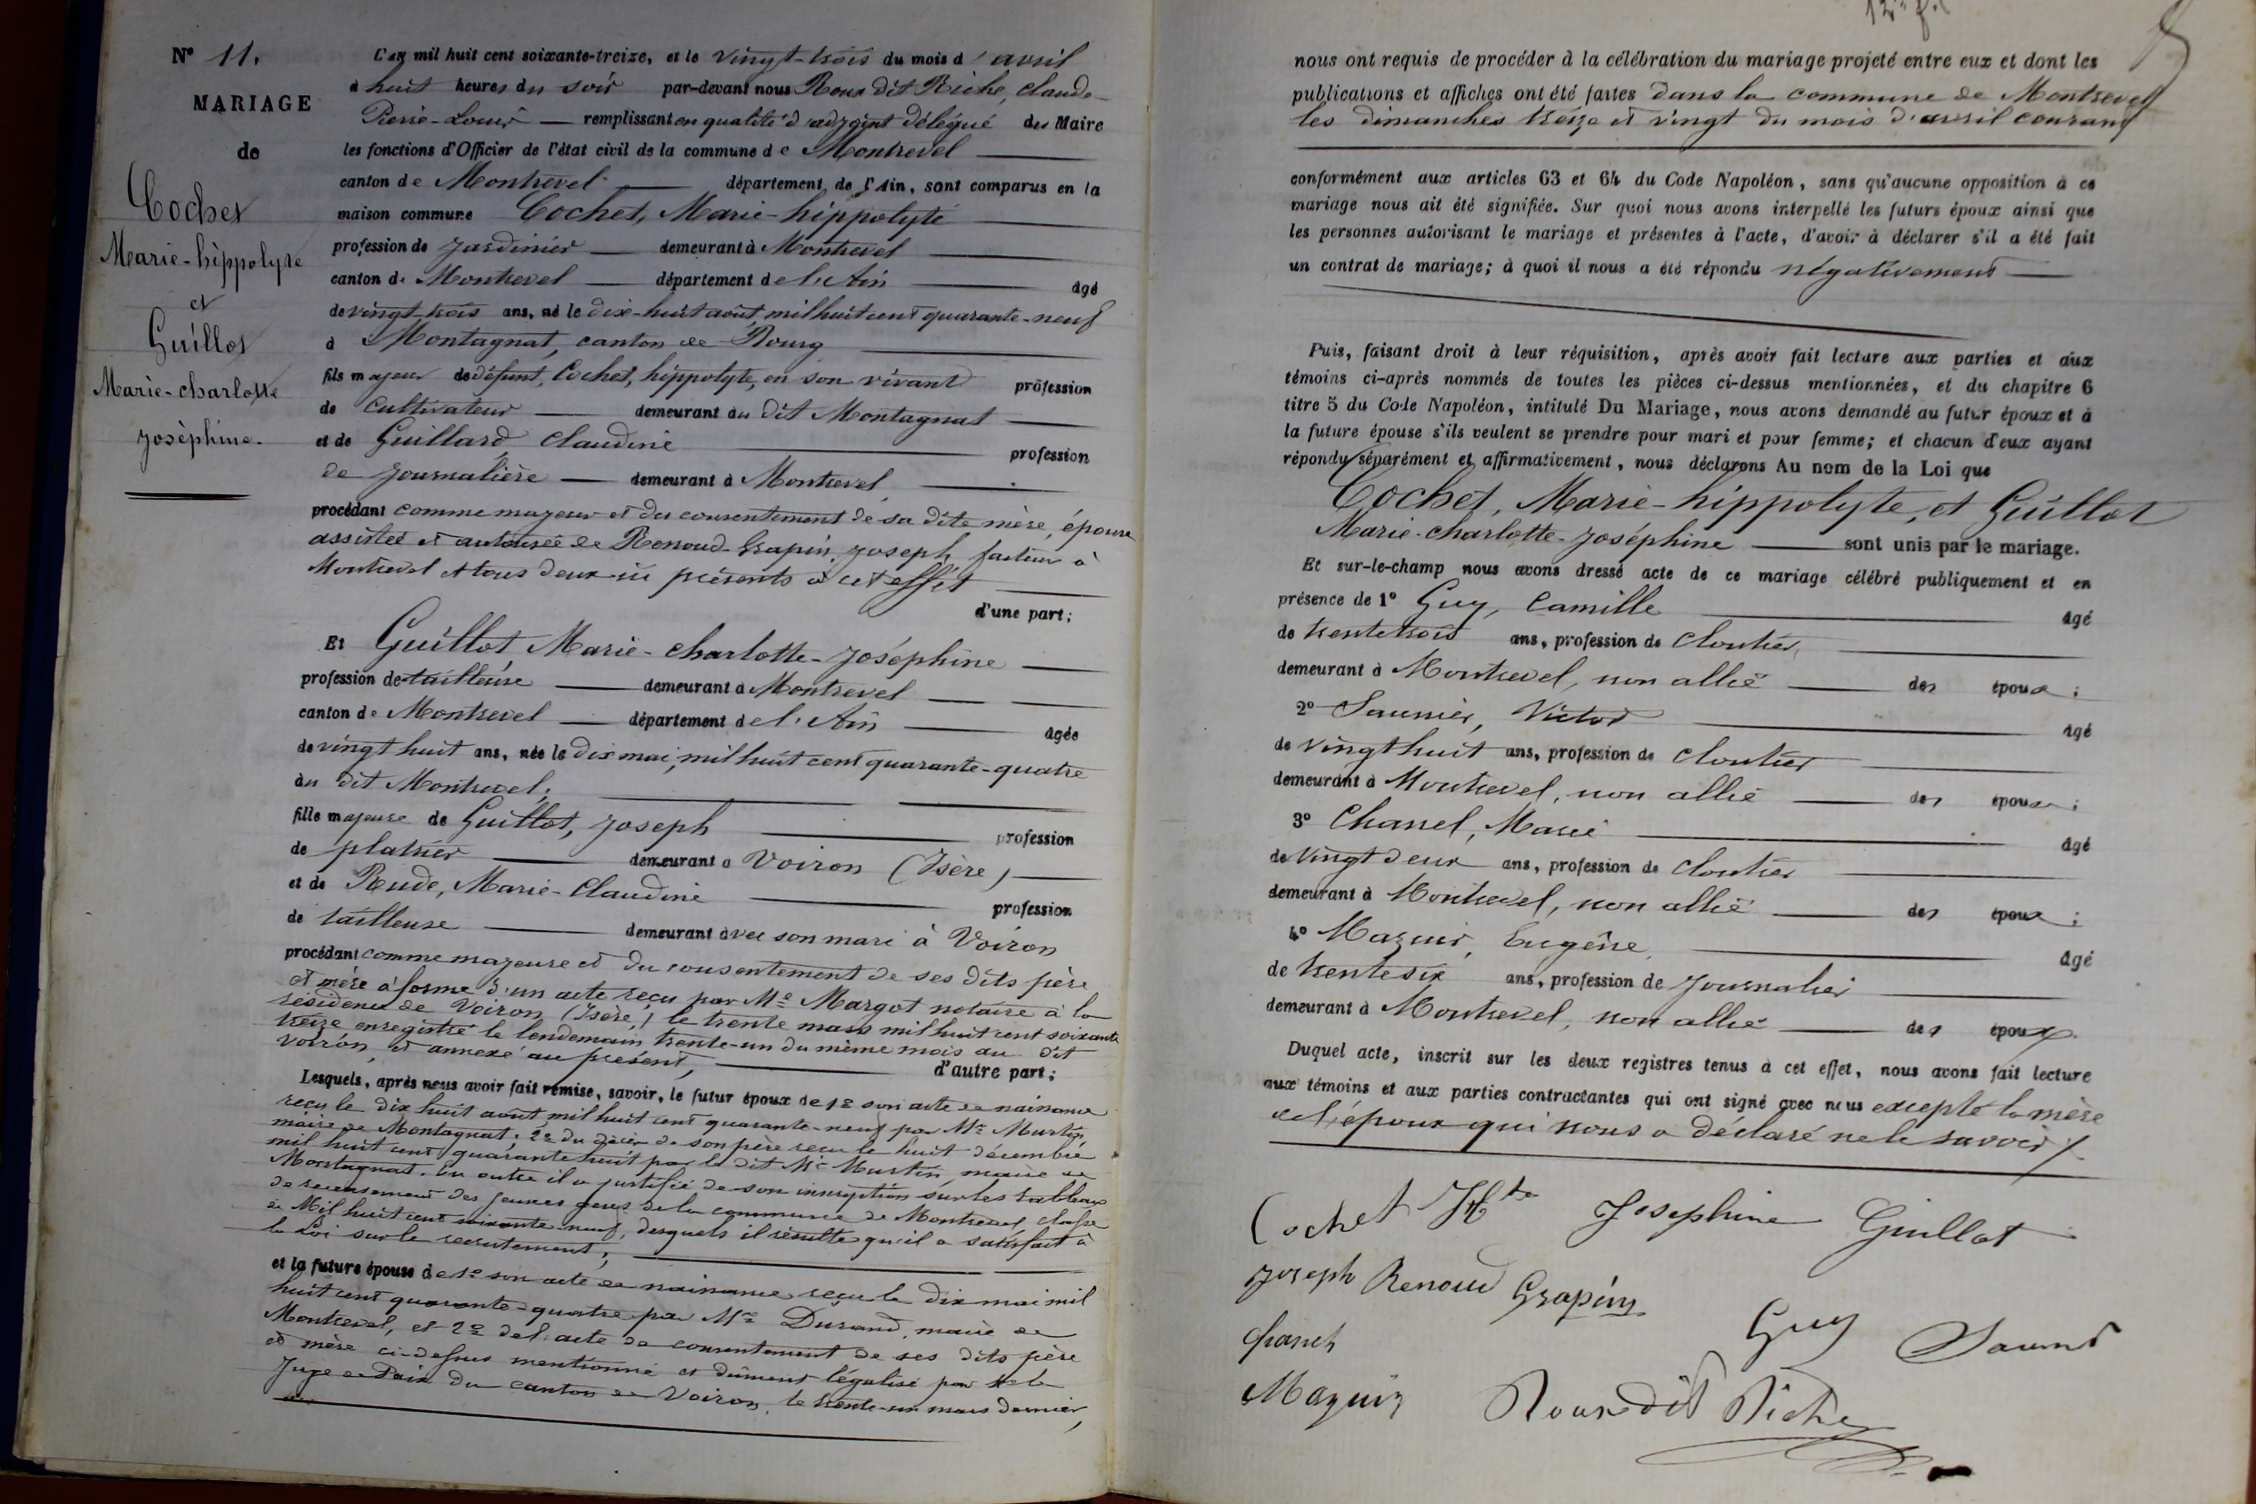 N° 11.
MARIAGE
de
Cochet
Marie-hippolyte
et
Guillot
Marie-charlotte
joséphine.
L'an mil huit cent soixante-treize, et le vingt-trois du mois d'avril
à huit heures du soir par-devant nous Roux dit Riche, Claude-
Pierre-Louis remplissant en qualité d'adjoint délégué des Maire
les fonctions d'Officier de l'état civil de la commune de Montrevel
canton de Montrevel département de l'Ain, sont comparus en la
maison commune Cochet, Marie-hippolyte
profession de jardinier demeurant à Montrevel
canton de Montrevel département de l'Ain âgé
de vingt-trois ans, né le dix-huit août mil huit cent quarante-neuf
à Montagnat, canton de Bourg
fils majeur de défunt, Cochet, hippolyte, en son vivant profession
de cultivateur demeurant au dit Montagnat
et de Guillard Claudine profession
de journalière demeurant à Montrevel
procédant comme majeur et du consentement de sa dite mère, épouse
assistée et autorisée de Renoud-Grapin, joseph, facteur à
Montrevel et tous deux ici présents à cet effet
d'une part;
Et Guillot, Marie-charlotte-joséphine
profession de tailleuse demeurant à Montrevel
canton de Montrevel département de l'Ain âgée
de vingt huit ans, née le dix mai, mil huit cent quarante-quatre
au dit Montrevel;
fille majeure de Guillot, joseph profession
de platrier demeurant à Voiron (Isère)
et de Rude, Marie-Claudine profession
de tailleuse demeurant avec son mari à Voiron
procédant comme majeure et du consentement de ses dits père
et mère à forme d'un acte reçu par Me Margot notaire à la
résidence de Voiron (Isère,) le trente mars mil huit cent soixante
treize enregistré le lendemain trente-un du même mois au dit
Voiron, et annexé au présent, d'autre part;
Lesquels, après nous avoir fait remise, savoir, le futur époux de 1º son acte de naissance
reçu le dix huit août mil huit cent quarante-neuf par Mr Martin,
maire de Montagnat. 2º du décès de son père reçu le huit décembre
mil huit cent quarante huit par le dit Mr Martin, maire de
Montagnat. En outre il a justifié de son inscription sur les tableaux
de recensement des jeunes gens de la commune de Montrevel, classe
de Mil huit cent soixante neuf, desquels il résulte qu'il a satisfait à
la Loi sur le recrutement;
et la future épouse de 1º son acte de naissance reçu le dix mai mil
huit cent quarante-quatre par Mr Durand, maire de
Montrevel, et 2º de l'acte de consentement de ses dits père
et mère ci-dessus mentionné et dûment légalisé par Mr le
Juge de Paix du canton de Voiron, le trente-un mars dernier,
nous ont requis de procéder à la célébration du mariage projeté entre eux et dont les
publications et affiches ont été faites dans la commune de Montrevel
les dimanches treize et vingt du mois d'avril courant
conformément aux articles 63 et 64 du Code Napoléon, sans qu'aucune opposition à ce
mariage nous ait été signifiée. Sur quoi nous avons interpellé les futurs époux ainsi que
les personnes autorisant le mariage et présentes à l'acte, d'avoir à déclarer s'il a été fait
un contrat de mariage; à quoi il nous a été répondu négativement
Puis, faisant droit à leur réquisition, après avoir fait lecture aux parties et aux
témoins ci-après nommés de toutes les pièces ci-dessus mentionnées, et du chapitre 6
titre 5 du Code Napoléon, intitulé Du Mariage, nous avons demandé au futur époux et à
la future épouse s'ils veulent se prendre pour mari et pour femme; et chacun d'eux ayant
répondu séparément et affirmativement, nous déclarons Au nom de la Loi que
Cochet, Marie-hippolyte, et Guillot
Marie-charlotte-Joséphine sont unis par le mariage.
Et sur-le-champ nous avons dressé acte de ce mariage célébré publiquement et en
présence de 1° Guy, Camille âgé
de trente trois ans, profession de Cloutier,
demeurant à Montrevel, non allié des époux;
2° Saunier, Victor âgé
de vingt huit ans, profession de cloutier
demeurant à Montrevel, non allié des époux;
3° Chanel, Marie âgé
de vingt deux ans, profession de cloutier
demeurant à Montrevel, non allié des époux;
4° Mazuir, Eugène, âgé
de trente six ans, profession de journalier
demeurant à Montrevel, non allié des époux.
Duquel acte, inscrit sur les deux registres tenus à cet effet, nous avons fait lecture
aux témoins et aux parties contractantes qui ont signé avec nous excepté la mère
de l'époux qui nous a déclaré ne le savoir
Cochet Hte Josephine Guillot
joseph Renoud Grapin
Guy
Chanel
Mazuir Roux dit Riche